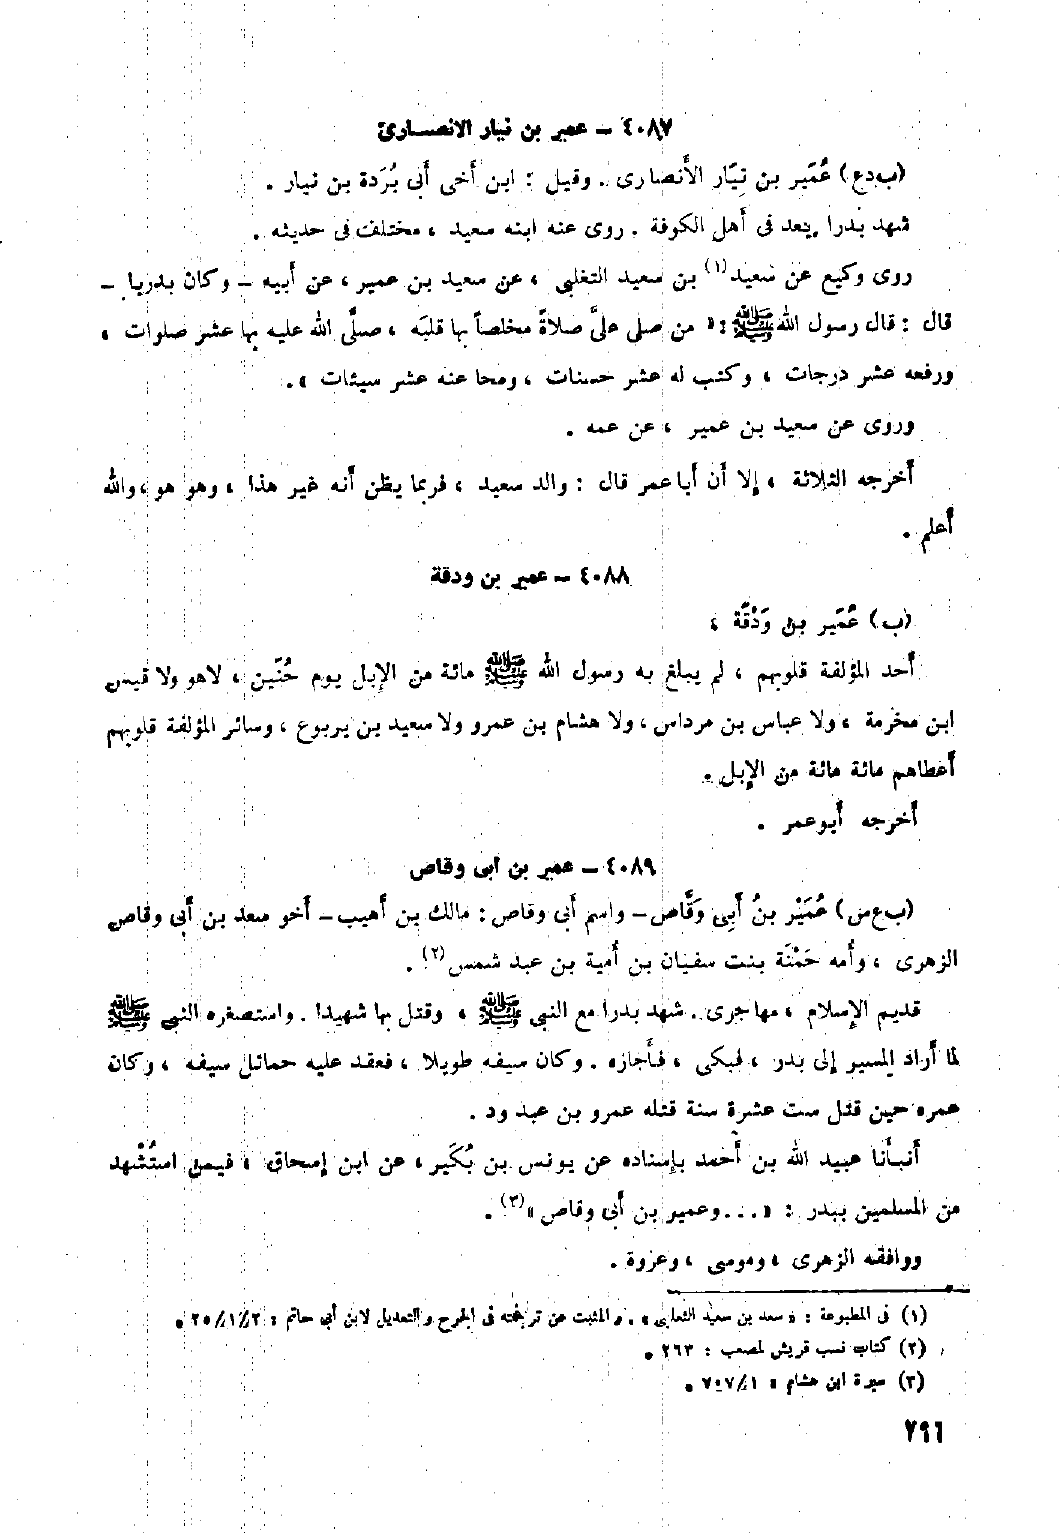 ٤٠٨٧ – عمير بن نيار الانصارى
(ب د ع) عُمَير بن نِيَار الأَنصارى . وقيل : ابن أخى أبى بُرَدة بن نيار .
شهد بدرا يعد فى أهل الكوفة . روى عنه ابنه سعيد ، مختلف فى حديثه .
روى وكيع عن سعيد(١) بن سعيد التغلبى ، عن سعيد بن عمير ، عن أبيه – وكان بدريا –
قال : قال رسول الله ﷺ : « من صلى علىَّ صلاةً مخلصاً بها قلبَه ، صلَّى الله عليه بها عشر صلوات ،
ورفعه عشر درجات ، وكتب له عشر حسنات ، ومحا عنه عشر سيئات » .
وروى عن سعيد بن عمير ، عن عمه .
أخرجه الثلاثة ، إلا أن أبا عمر قال : والد سعيد ، فربما يظن أنه غير هذا ، وهو هو ، والله
أعلم .
٤٠٨٨ – عمير بن ودقة
(ب) عُمَير بن وَدْقَة ،
أحد المؤلفة قلوبهم ، لم يبلغ به رسول الله ﷺ مائة من الإبل يوم حُنَين ، لا هو ولا قيس
ابن مخرمة ، ولا عباس بن مرداس ، ولا هشام بن عمرو ولا سعيد بن يربوع ، وسائر المؤلفة قلوبهم
أعطاهم مائة مائة من الإبل .
أخرجه أبو عمر .
٤٠٨٩ – عمير بن أبى وقاص
(ب ع س) عُمَيْر بنُ أَبِى وَقَّاص – واسم أبى وقاص : مالك بن أهيب – أخو سعد بن أبى وقاص
الزهرى ، وأمه حَمْنَة بنت سفيان بن أمية بن عبد شمس(٢) .
قديم الإسلام ، مهاجرى . شهد بدرا مع النبى ﷺ ، وقتل بها شهيدا . واستصغره النبى ﷺ
لما أراد المسير إلى بدر ، فبكى ، فأجازه . وكان سيفه طويلا ، فعقد عليه حمائل سيفه ، وكان
عمره حين قتل ست عشرة سنة قتله عمرو بن عبد ود .
أنبأنا عبيد الله بن أحمد بإسناده عن يونس بن بُكَير ، عن ابن إسحاق ، فيمن استُشْهد
من المسلمين ببدر : « . . . وعمير بن أبى وقاص »(٣) .
ووافقه الزهرى ، وموسى ، وعروة .
(١) فى المطبوعة : « سعد بن سعيد الثعلبى » . والمثبت عن ترجمته فى الجرح والتعديل لابن أبى حاتم : ٢/١/٢٥ .
(٢) كتاب نسب قريش لمصعب : ٢٦٣ .
(٣) سيرة ابن هشام : ١/٧٠٧ .
٢٩٦